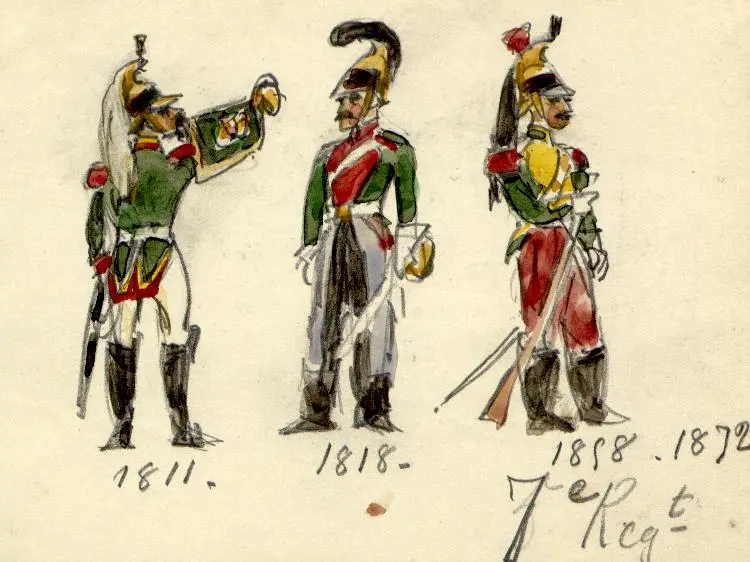 1811.
1818-
1858.1872
7e Regt